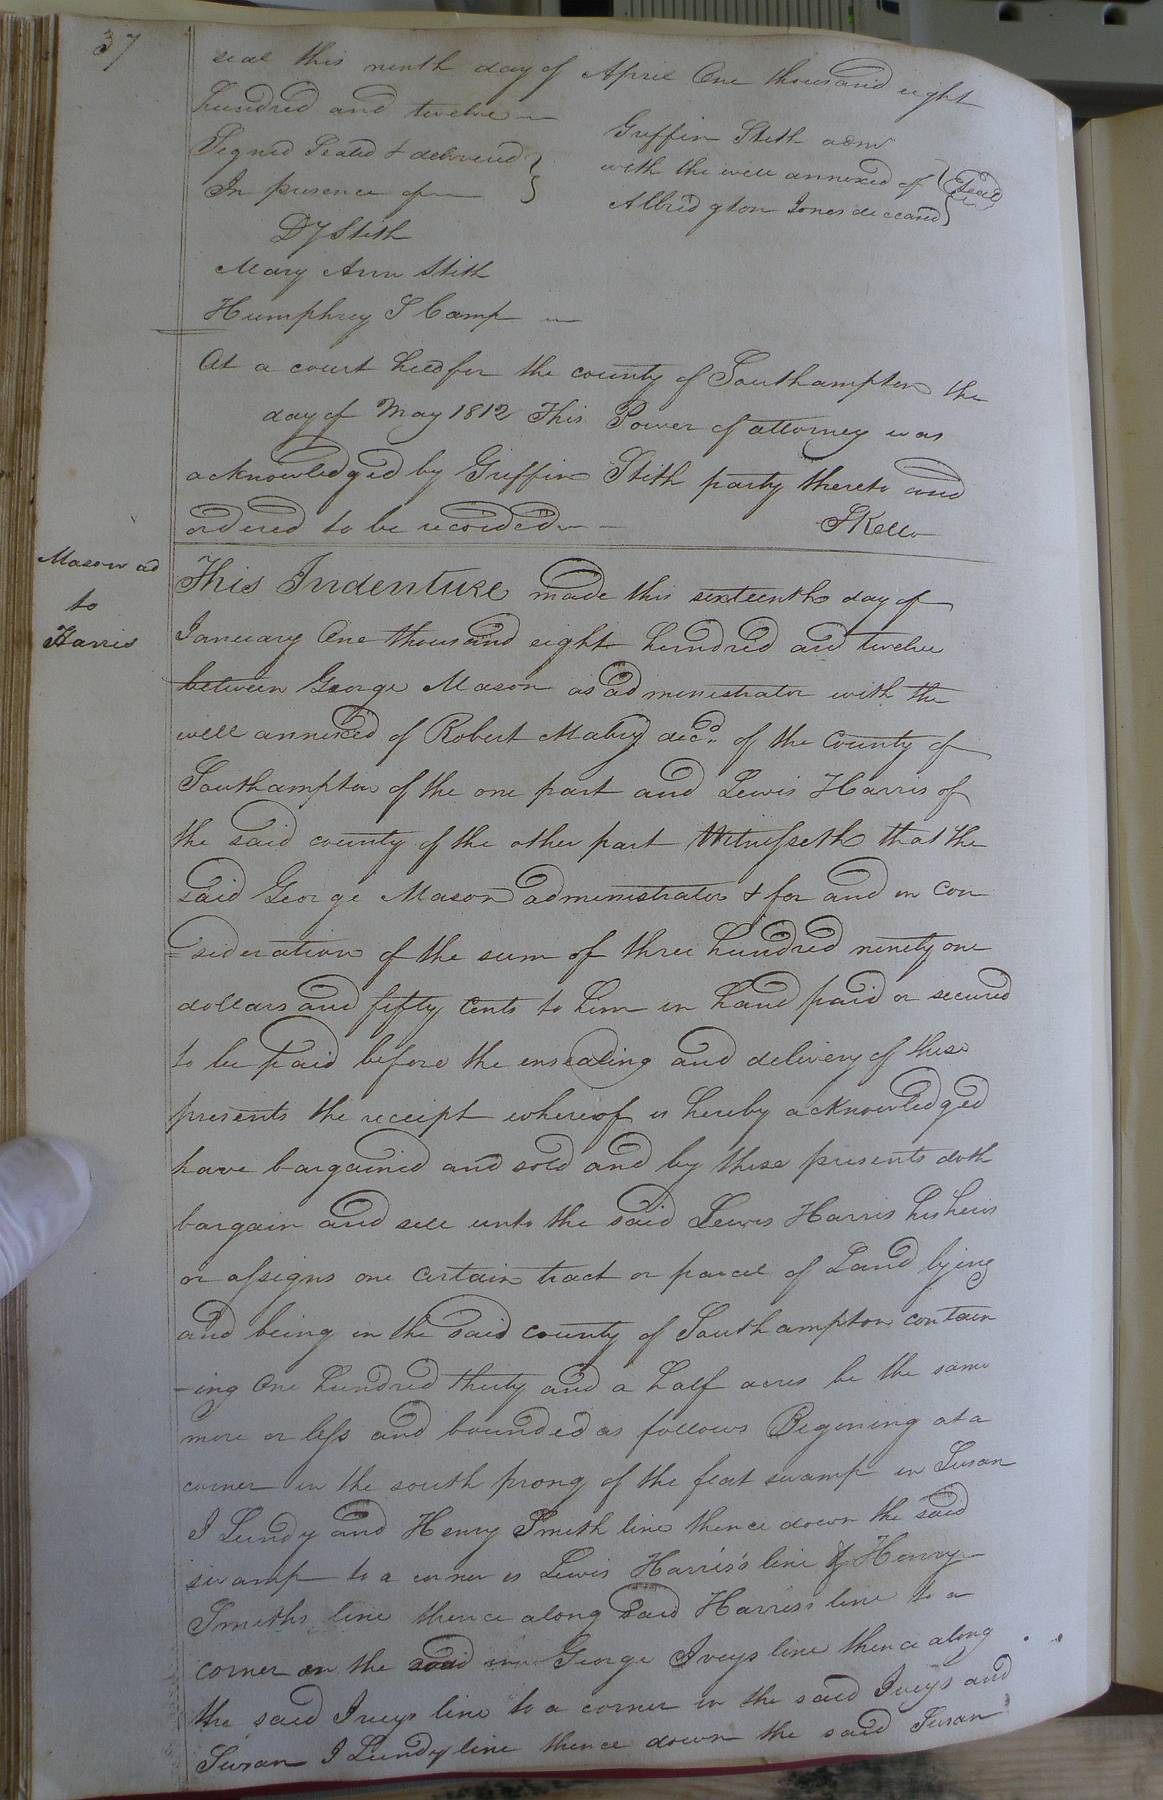 37
seal this ninth day of April One thousand eight
hundred and twelve
Signed Sealed & delivered
In presence of
D J Stith
Mary Ann Stith
Humphrey S Camp
Griffin Stith admr
with the will annexed of
Albridgton Jones deceased
Seal
At a court held for the county of Southampton the
day of May 1812 This Power of attorney was
acknowledged by Griffin Stith party thereto and
ordered to be recorded
S Kello
Mason ad
to
Harris
This Indenture made this sixteenth day of
January One thousand eight hundred and twelve
between George Mason as administrator with the
will annexed of Robert Mabry decd. of the County of
Southampton of the one part and Lewis Harris of
the said county of the other part Witnesseth that the
said George Mason administrator & for and in con
=sideration of the sum of three hundred ninety one
dollars and fifty Cents to him in hand paid or secured
to be paid before the ensealing and delivery of these
presents the receipt whereof is hereby acknowledged
have bargained and sold and by these presents doth
bargain and sell unto the said Lewis Harris his heirs
or assigns one certain tract or parcel of Land lying
and being in the said county of Southampton contain
-ing One hundred thirty and a half acres be the same
more or less and bounded as follows Begining at a
corner in the south prong of the flat swamp in Susan
I Lundy and Henry Smith line thence down the said
swamp to a corner is Lewis Harris's line & Henry
Smiths line thence along said Harris's line to a
corner on the road in George Iveys line thence along
the said Iveys line to a corner in the said Iveys and
Susan I Lundy line thence down the said Susan